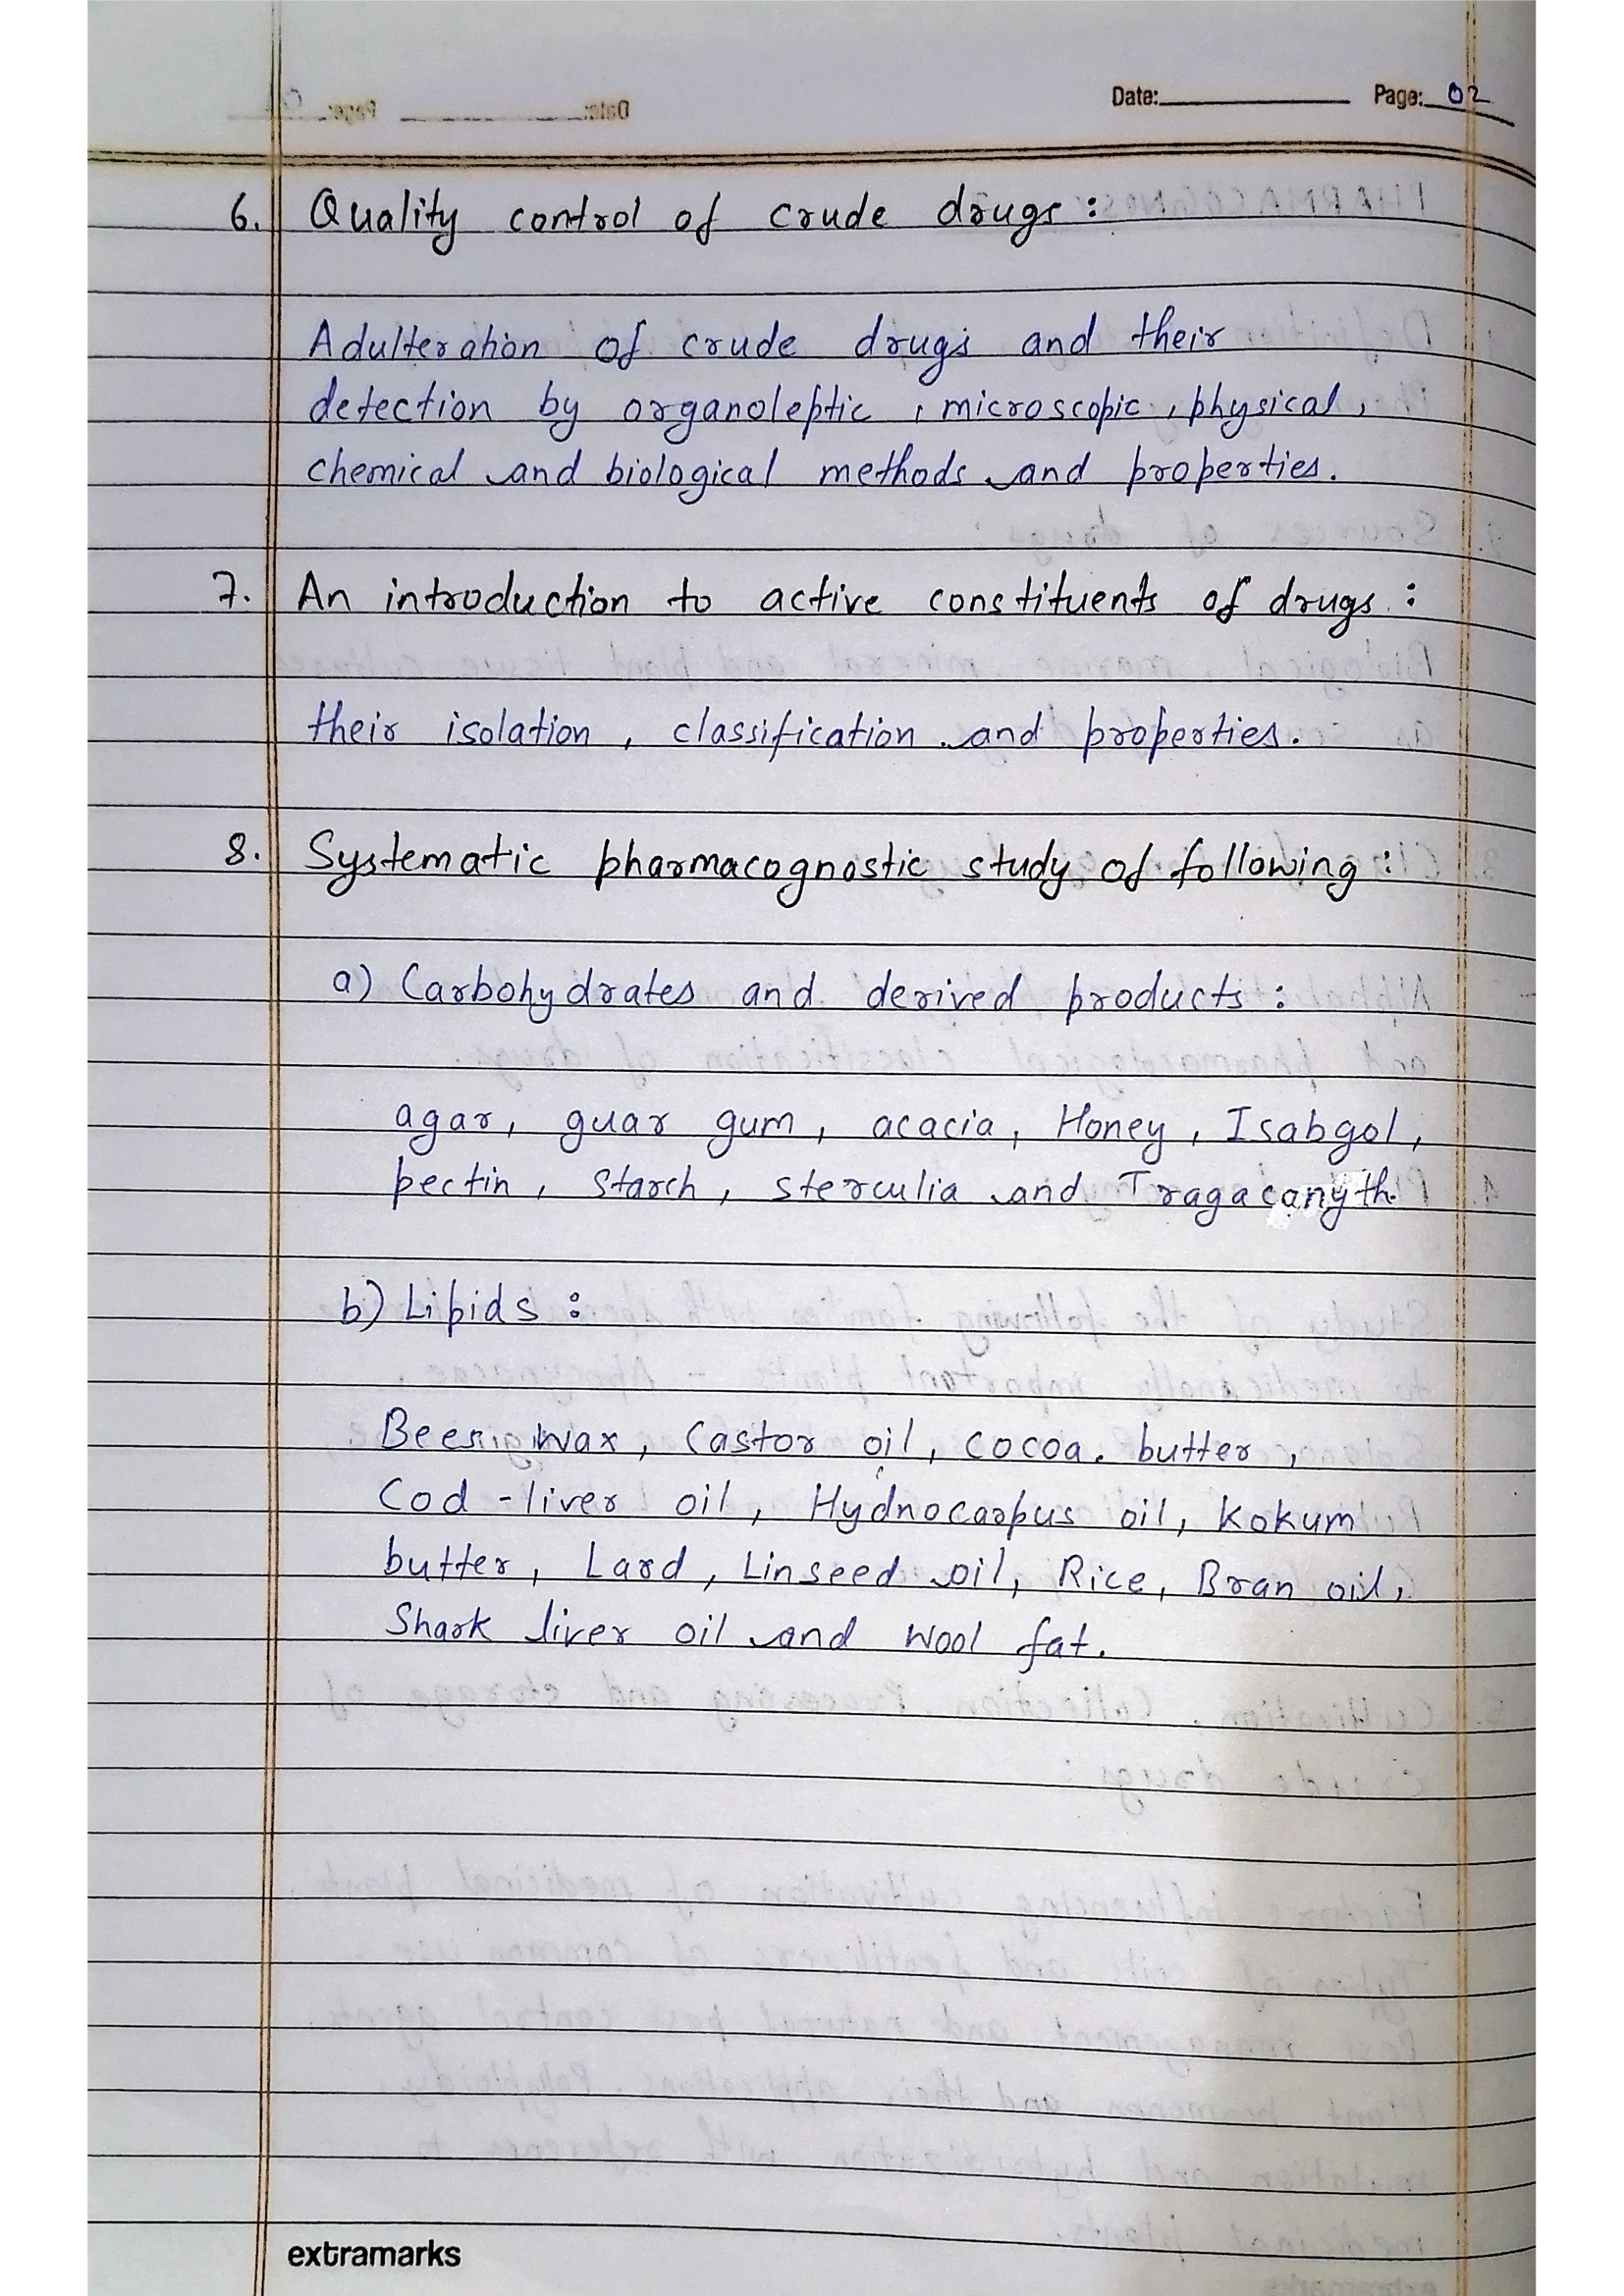 Date: Page: 02
6. Quality control of crude drugs :
Adulteration of crude drugs and their
detection by organoleptic, microscopic, physical,
chemical and biological methods and properties.
7. An introduction to active constituents of drugs :
their isolation, classification and properties.
8. Systematic pharmacognostic study of following :
a) Carbohydrates and derived products :
agar, guar gum, acacia, Honey, Isabgol,
pectin, Starch, sterculia and Tragacanyth.
b) Lipids :
Bees wax, Castor oil, cocoa. butter,
Cod-liver oil, Hydnocarpus oil, kokum
butter, Lard, Linseed oil, Rice, Bran oil,
Shark liver oil and wool fat.
extramarks